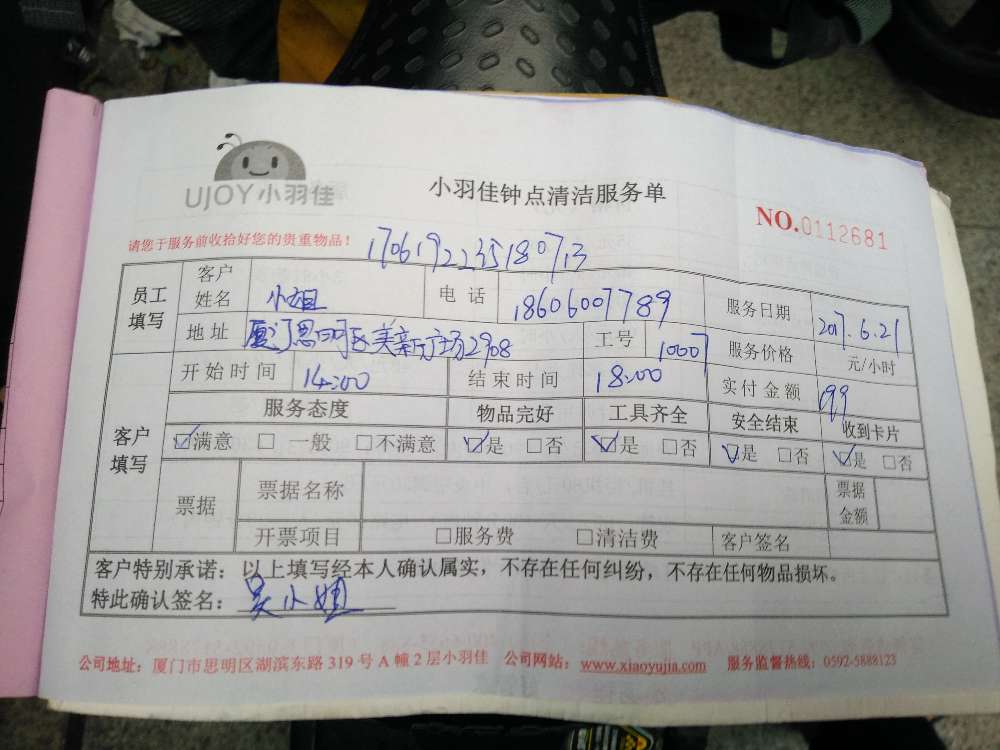 UJOY小羽佳
小羽佳钟点清洁服务单
NO.0112681
请您于服务前收拾好您的贵重物品！
1706192235180713
员工填写 客户姓名 小姐 电话 18606007789 服务日期 2017.6.21
地址 厦门思明区美新广场2908 工号 10007 服务价格 元/小时
客户填写 开始时间 14:00 结束时间 18:00 实付金额 99
服务态度 物品完好 工具齐全 安全结束 收到卡片
☑满意 □一般 □不满意 ☑是 □否 ☑是 □否 ☑是 □否 ☑是 □否
票据 票据名称 票据金额
开票项目 □服务费 □清洁费 客户签名
客户特别承诺：以上填写经本人确认属实，不存在任何纠纷，不存在任何物品损坏。
特此确认签名：吴小姐
公司地址：厦门市思明区湖滨东路319号A幢2层小羽佳 公司网站：www.xiaoyujia.com 服务监督热线：0592-5888123